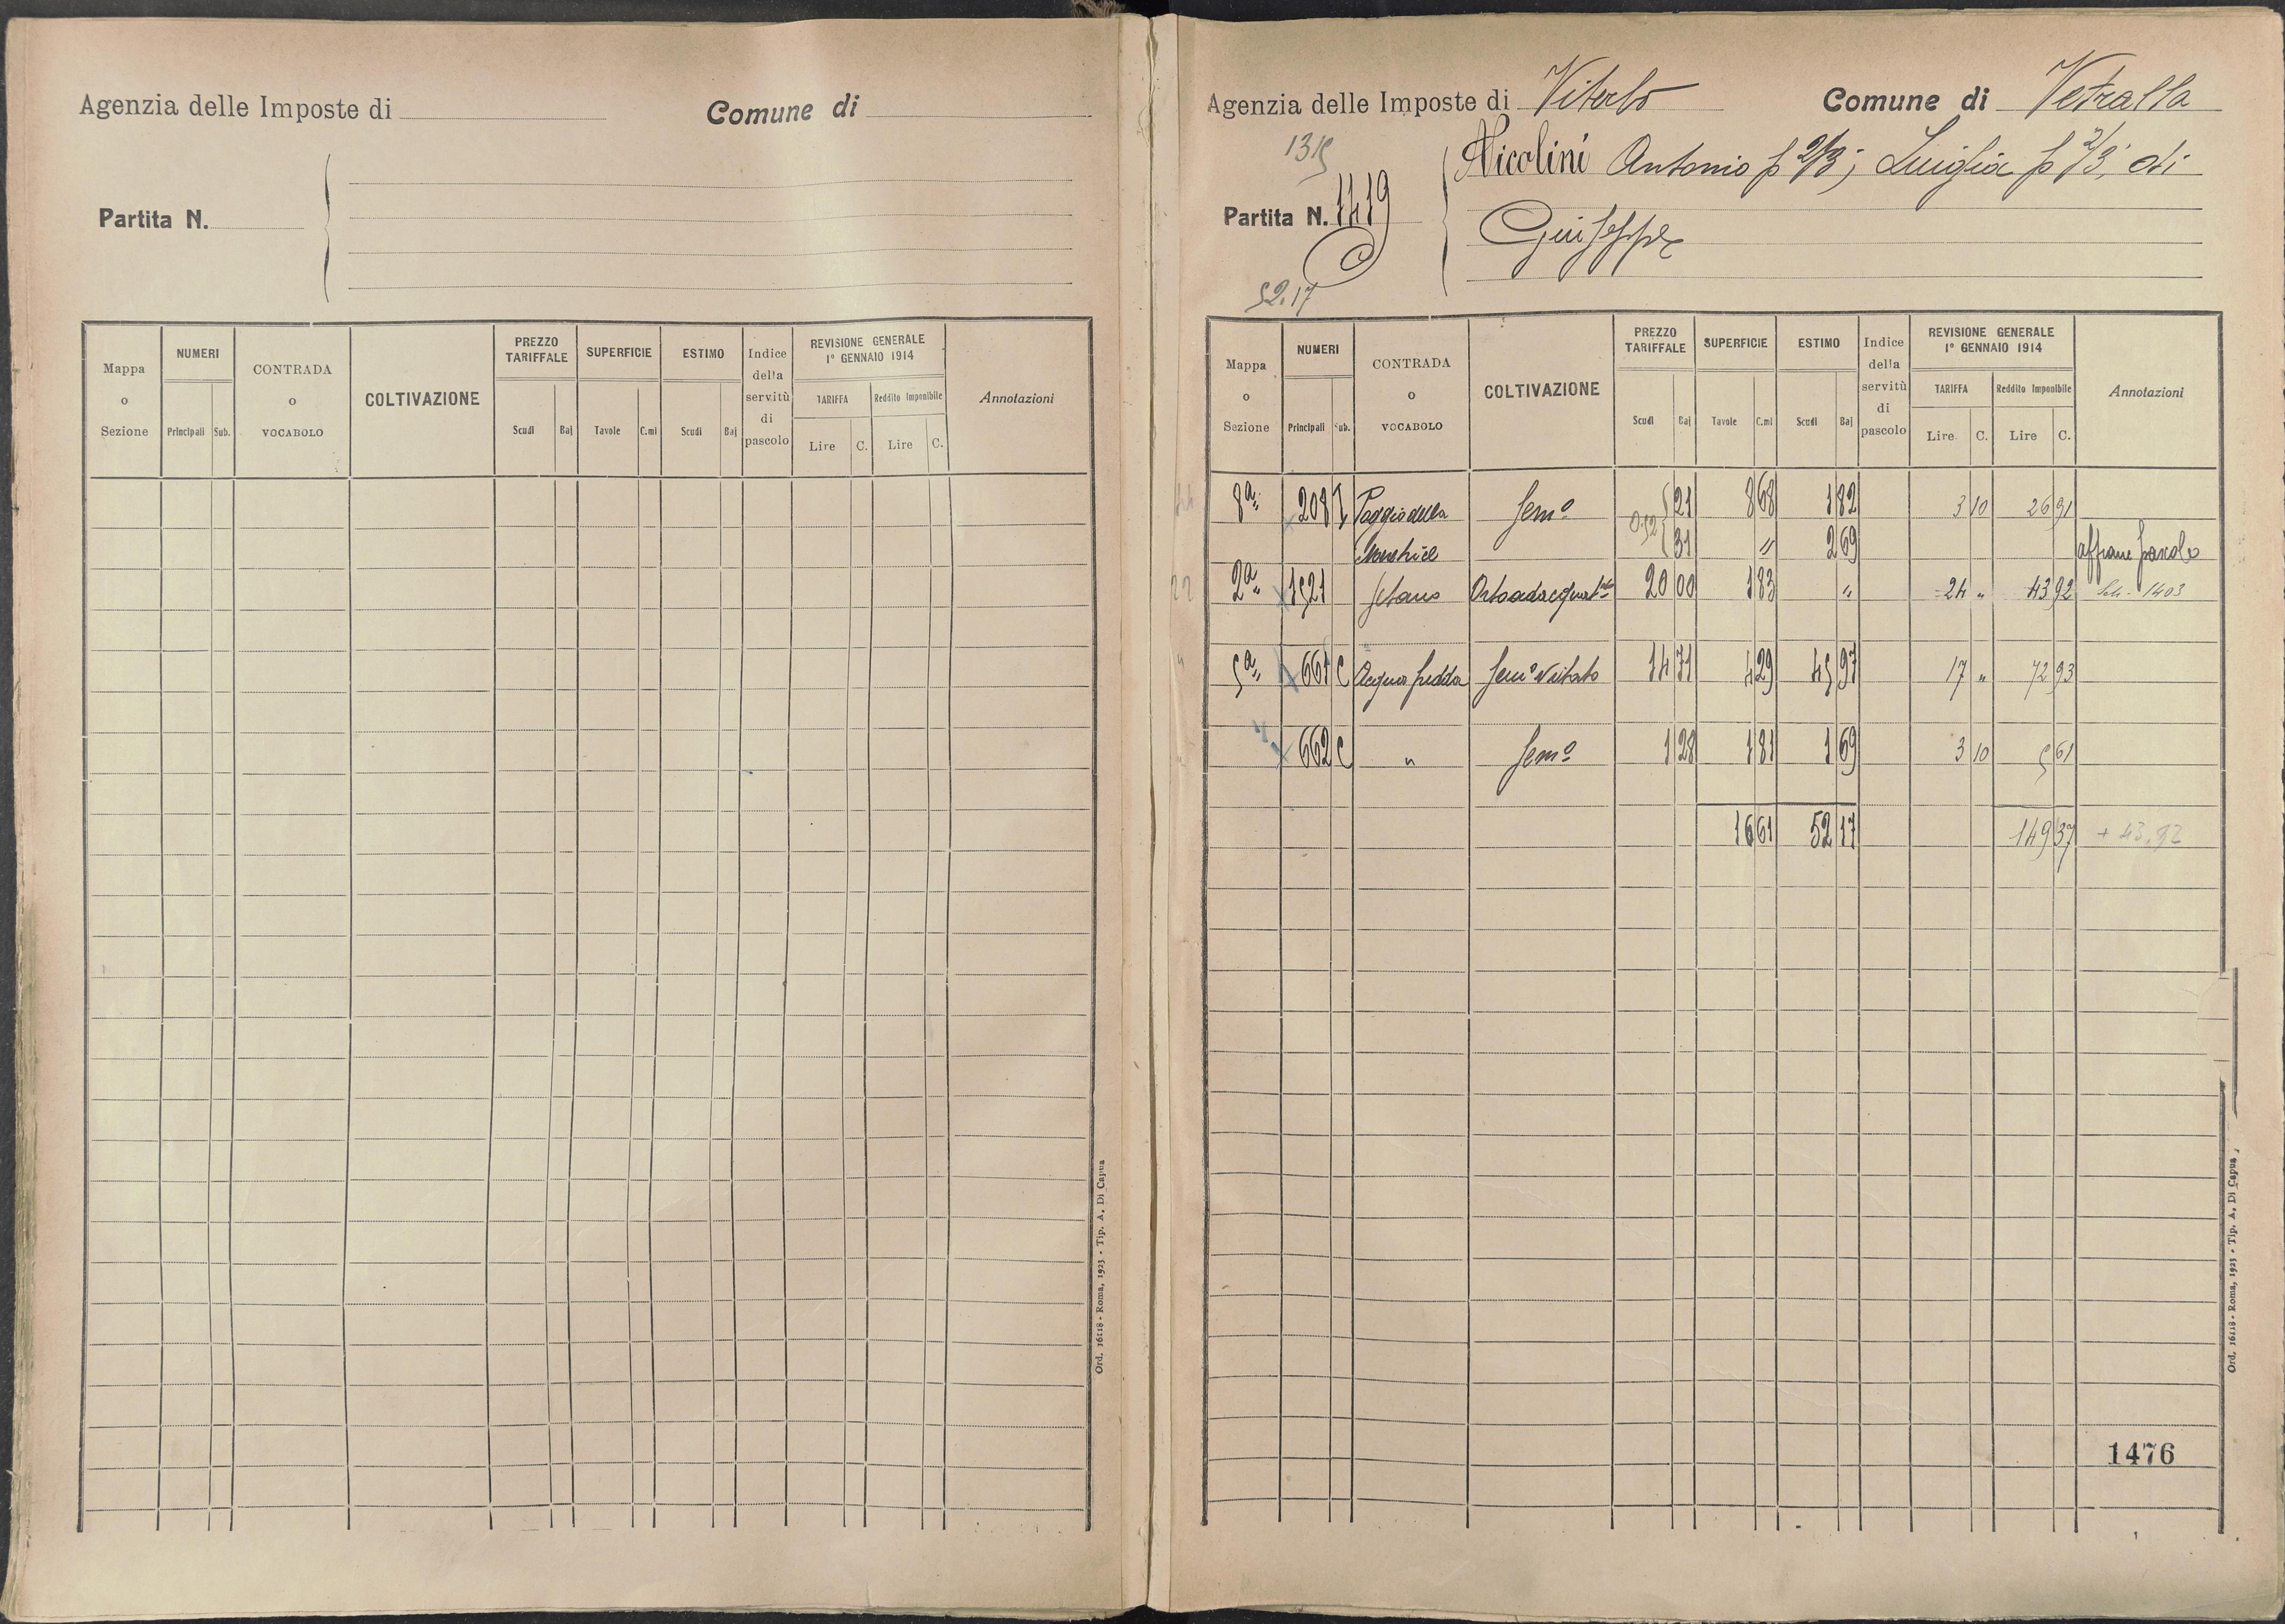 Agenzia delle Imposte di
Comune di
Partita N.
Mappa o Sezione
NUMERI
Principali Sub.
CONTRADA o VOCABOLO
COLTIVAZIONE
PREZZO TARIFFALE
Scudi Baj
SUPERFICIE
Tavole C.mi
ESTIMO
Scudi Baj
Indice della servitù di pascolo
REVISIONE GENERALE 1° GENNAIO 1914
TARIFFA
Lire C.
Reddito Imponibile
Lire C.
Annotazioni
Ord. 16118 - Roma, 1923 - Tip. A. Di Capua
Agenzia delle Imposte di Viterbo
Comune di Vetralla
1315
Nicolini Antonio p 2/3; Luigia p 2/3, di
Partita N. 1419
Giuseppe
52.17
Mappa o Sezione
NUMERI
Principali Sub.
CONTRADA o VOCABOLO
COLTIVAZIONE
PREZZO TARIFFALE
Scudi Baj
SUPERFICIE
Tavole C.mi
ESTIMO
Scudi Baj
Indice della servitù di pascolo
REVISIONE GENERALE 1° GENNAIO 1914
TARIFFA
Lire C.
Reddito Imponibile
Lire C.
Annotazioni
8ª 208 Poggio della Semo 21 8 68 1 82 3 10 26 91
0,52 31 " 2 69
2ª 1521 20 00 1 83 " 24 " 43 92 1403
5ª 661 C Acqua fredda Semo Vitato 14 71 4 29 45 97 17 " 72 93
662 C " Semo 1 28 1 81 1 69 3 10 5 61
16 61 52 17 149 37 + 43,92
1476
Ord. 16118 - Roma, 1923 - Tip. A. Di Capua